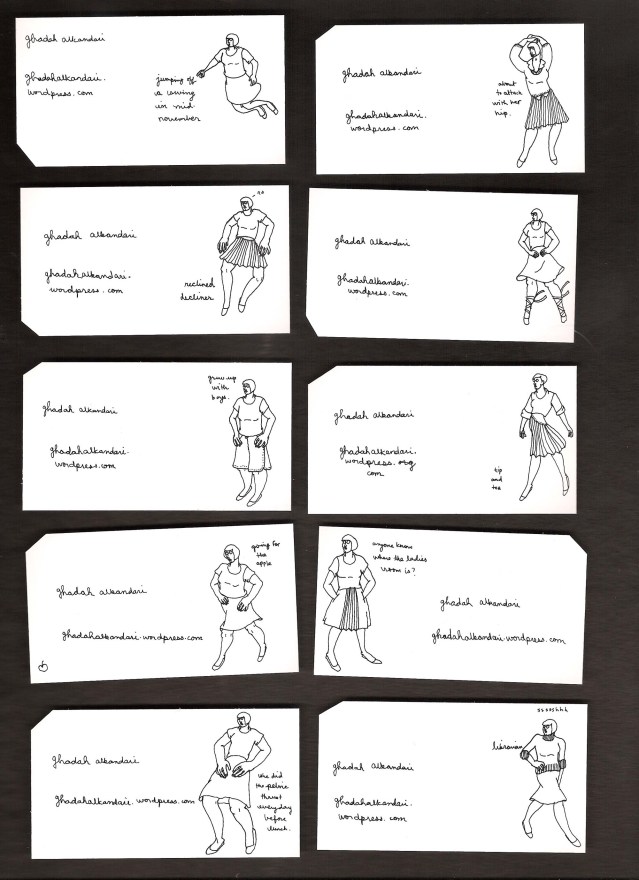 ghadah alkandari
ghadahalkandari.
wordpress.com
jumping off
a swing
in mid-
november
ghadah alkandari
ghadahalkandari.
wordpress.com
about
to attack
with her
hip.
ghadah alkandari
ghadahalkandari.
wordpress.com
reclined
decliner
ghadah alkandari
ghadahalkandari.
wordpress.com
ghadah alkandari
ghadahalkandari.
wordpress.com
grew up
with
boys.
ghadah alkandari
ghadahalkandari.
wordpress.org
com
tip
and
toe
ghadah alkandari
ghadahalkandari.wordpress.com
going for
the
apple
anyone know
where the ladies
room is?
ghadah alkandari
ghadahalkandari.wordpress.com
ghadah alkandari
ghadahalkandari.wordpress.com
she did
the pelvic
thrust
everyday
before
lunch.
sssoshhh
librarian
ghadah alkandari
ghadahalkandari.
wordpress.com